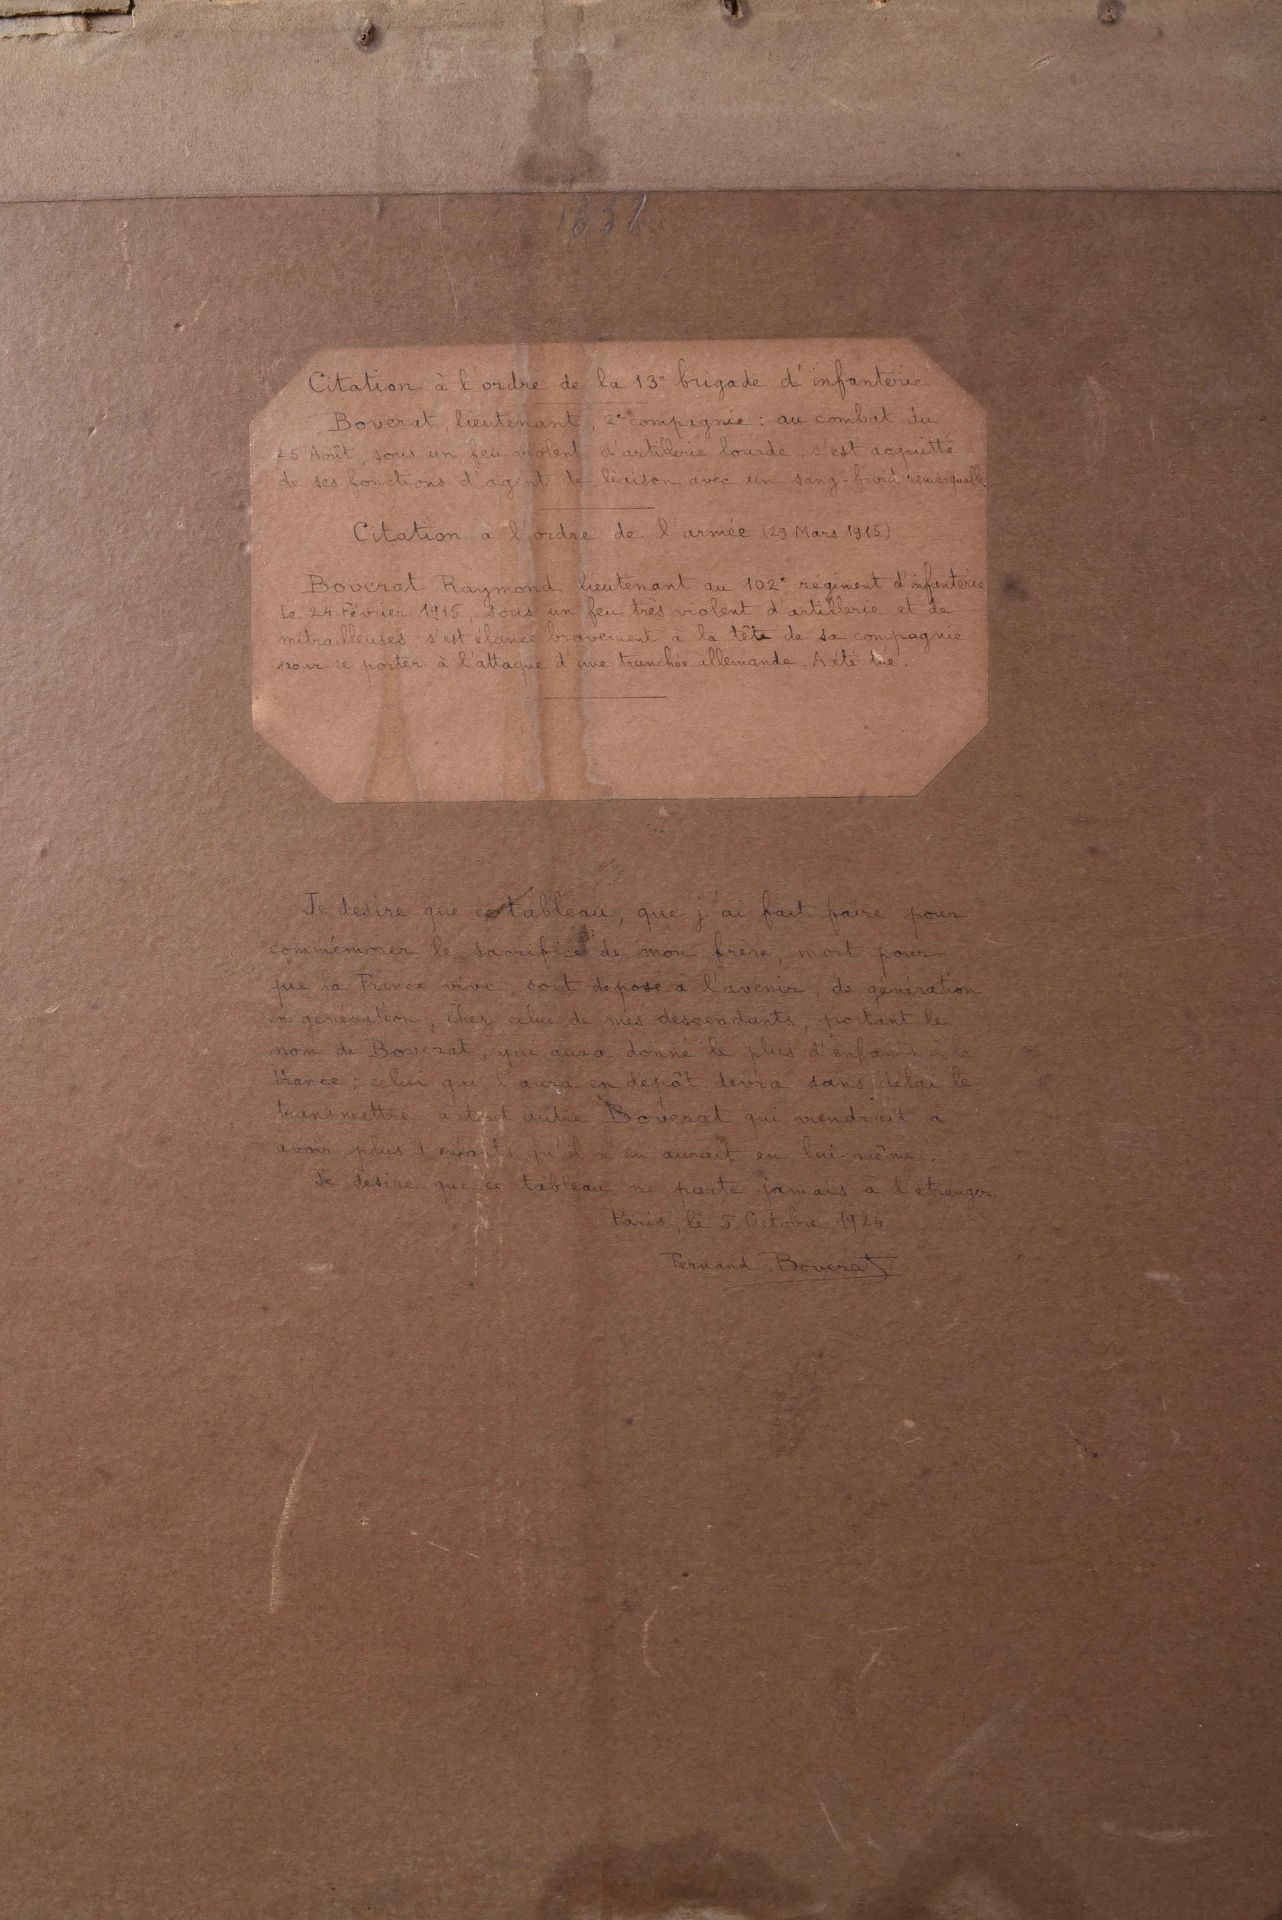 Citation à l'ordre de la 13e brigade d'infanterie
Boverat, lieutenant, 2e compagnie : au combat du
25 Août, sous un feu violent d'artillerie lourde, s'est acquitté
de ses fonctions d'agent de liaison avec un sang-froid remarquable
Citation à l'ordre de l'armée (29 Mars 1915)
Boverat Raymond lieutenant au 102e régiment d'infanterie
Le 24 Février 1915, sous un feu très violent d'artillerie et de
mitrailleuses s'est élancé bravement à la tête de sa compagnie
pour se porter à l'attaque d'une tranchée allemande. A été tué.
Je désire que ce tableau, que j'ai fait faire pour
commémorer le sacrifice de mon frère, mort pour
que la France vive, soit déposé à l'avenir, de génération
en génération, chez celui de mes descendants, portant le
nom de Boverat, qui aura donné le plus d'enfants à la
France ; celui qui l'aura en dépôt devra sans délai le
transmettre à tout autre Boverat qui viendrait à
avoir plus d'enfants qu'il n'en aurait eu lui-même.
Je désire que ce tableau ne parte jamais à l'étranger
Paris, le 5 Octobre 1924
Fernand Boverat